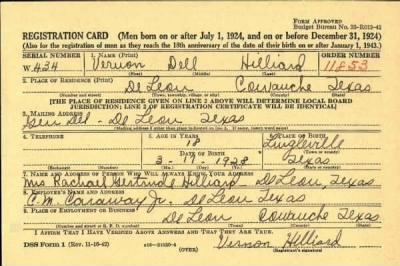 FORM APPROVED
Budget Bureau No. 33-R012-42
REGISTRATION CARD (Men born on or after July 1, 1924, and on or before December 31, 1924)
(Also for the registration of men as they reach the 18th anniversary of the date of their birth on or after January 1, 1943.)
SERIAL NUMBER 1. NAME (Print) ORDER NUMBER
W. 434 Vernon Dell Hilliard 11853
(First) (Middle) (Last)
2. PLACE OF RESIDENCE (Print)
De Leon Comanche Texas
(Number and street) (Town, township, village, or city) (County) (State)
[THE PLACE OF RESIDENCE GIVEN ON LINE 2 ABOVE WILL DETERMINE LOCAL BOARD
JURISDICTION; LINE 2 OF REGISTRATION CERTIFICATE WILL BE IDENTICAL]
3. MAILING ADDRESS
Gen Del - De Leon Texas
[Mailing address if other than place indicated on line 2. If same, insert word same]
4. TELEPHONE 5. AGE IN YEARS 6. PLACE OF BIRTH
18 Lingleville
DATE OF BIRTH
3 - 11 - 1928 Texas
(Exchange) (Number) (Mo.) (Day) (Yr.) (State or country)
7. NAME AND ADDRESS OF PERSON WHO WILL ALWAYS KNOW YOUR ADDRESS
Mrs Rachail Gertrude Hilliard - De Leon, Texas
8. EMPLOYER'S NAME AND ADDRESS
C. M. Caraway Jr. De Leon Texas
9. PLACE OF EMPLOYMENT OR BUSINESS
De Leon Comanche Texas
(Number and street or R. F. D. number) (Town) (County) (State)
I AFFIRM THAT I HAVE VERIFIED ABOVE ANSWERS AND THAT THEY ARE TRUE.
DSS Form 1 (Rev. 11-16-42) (OVER) Vernon Hilliard